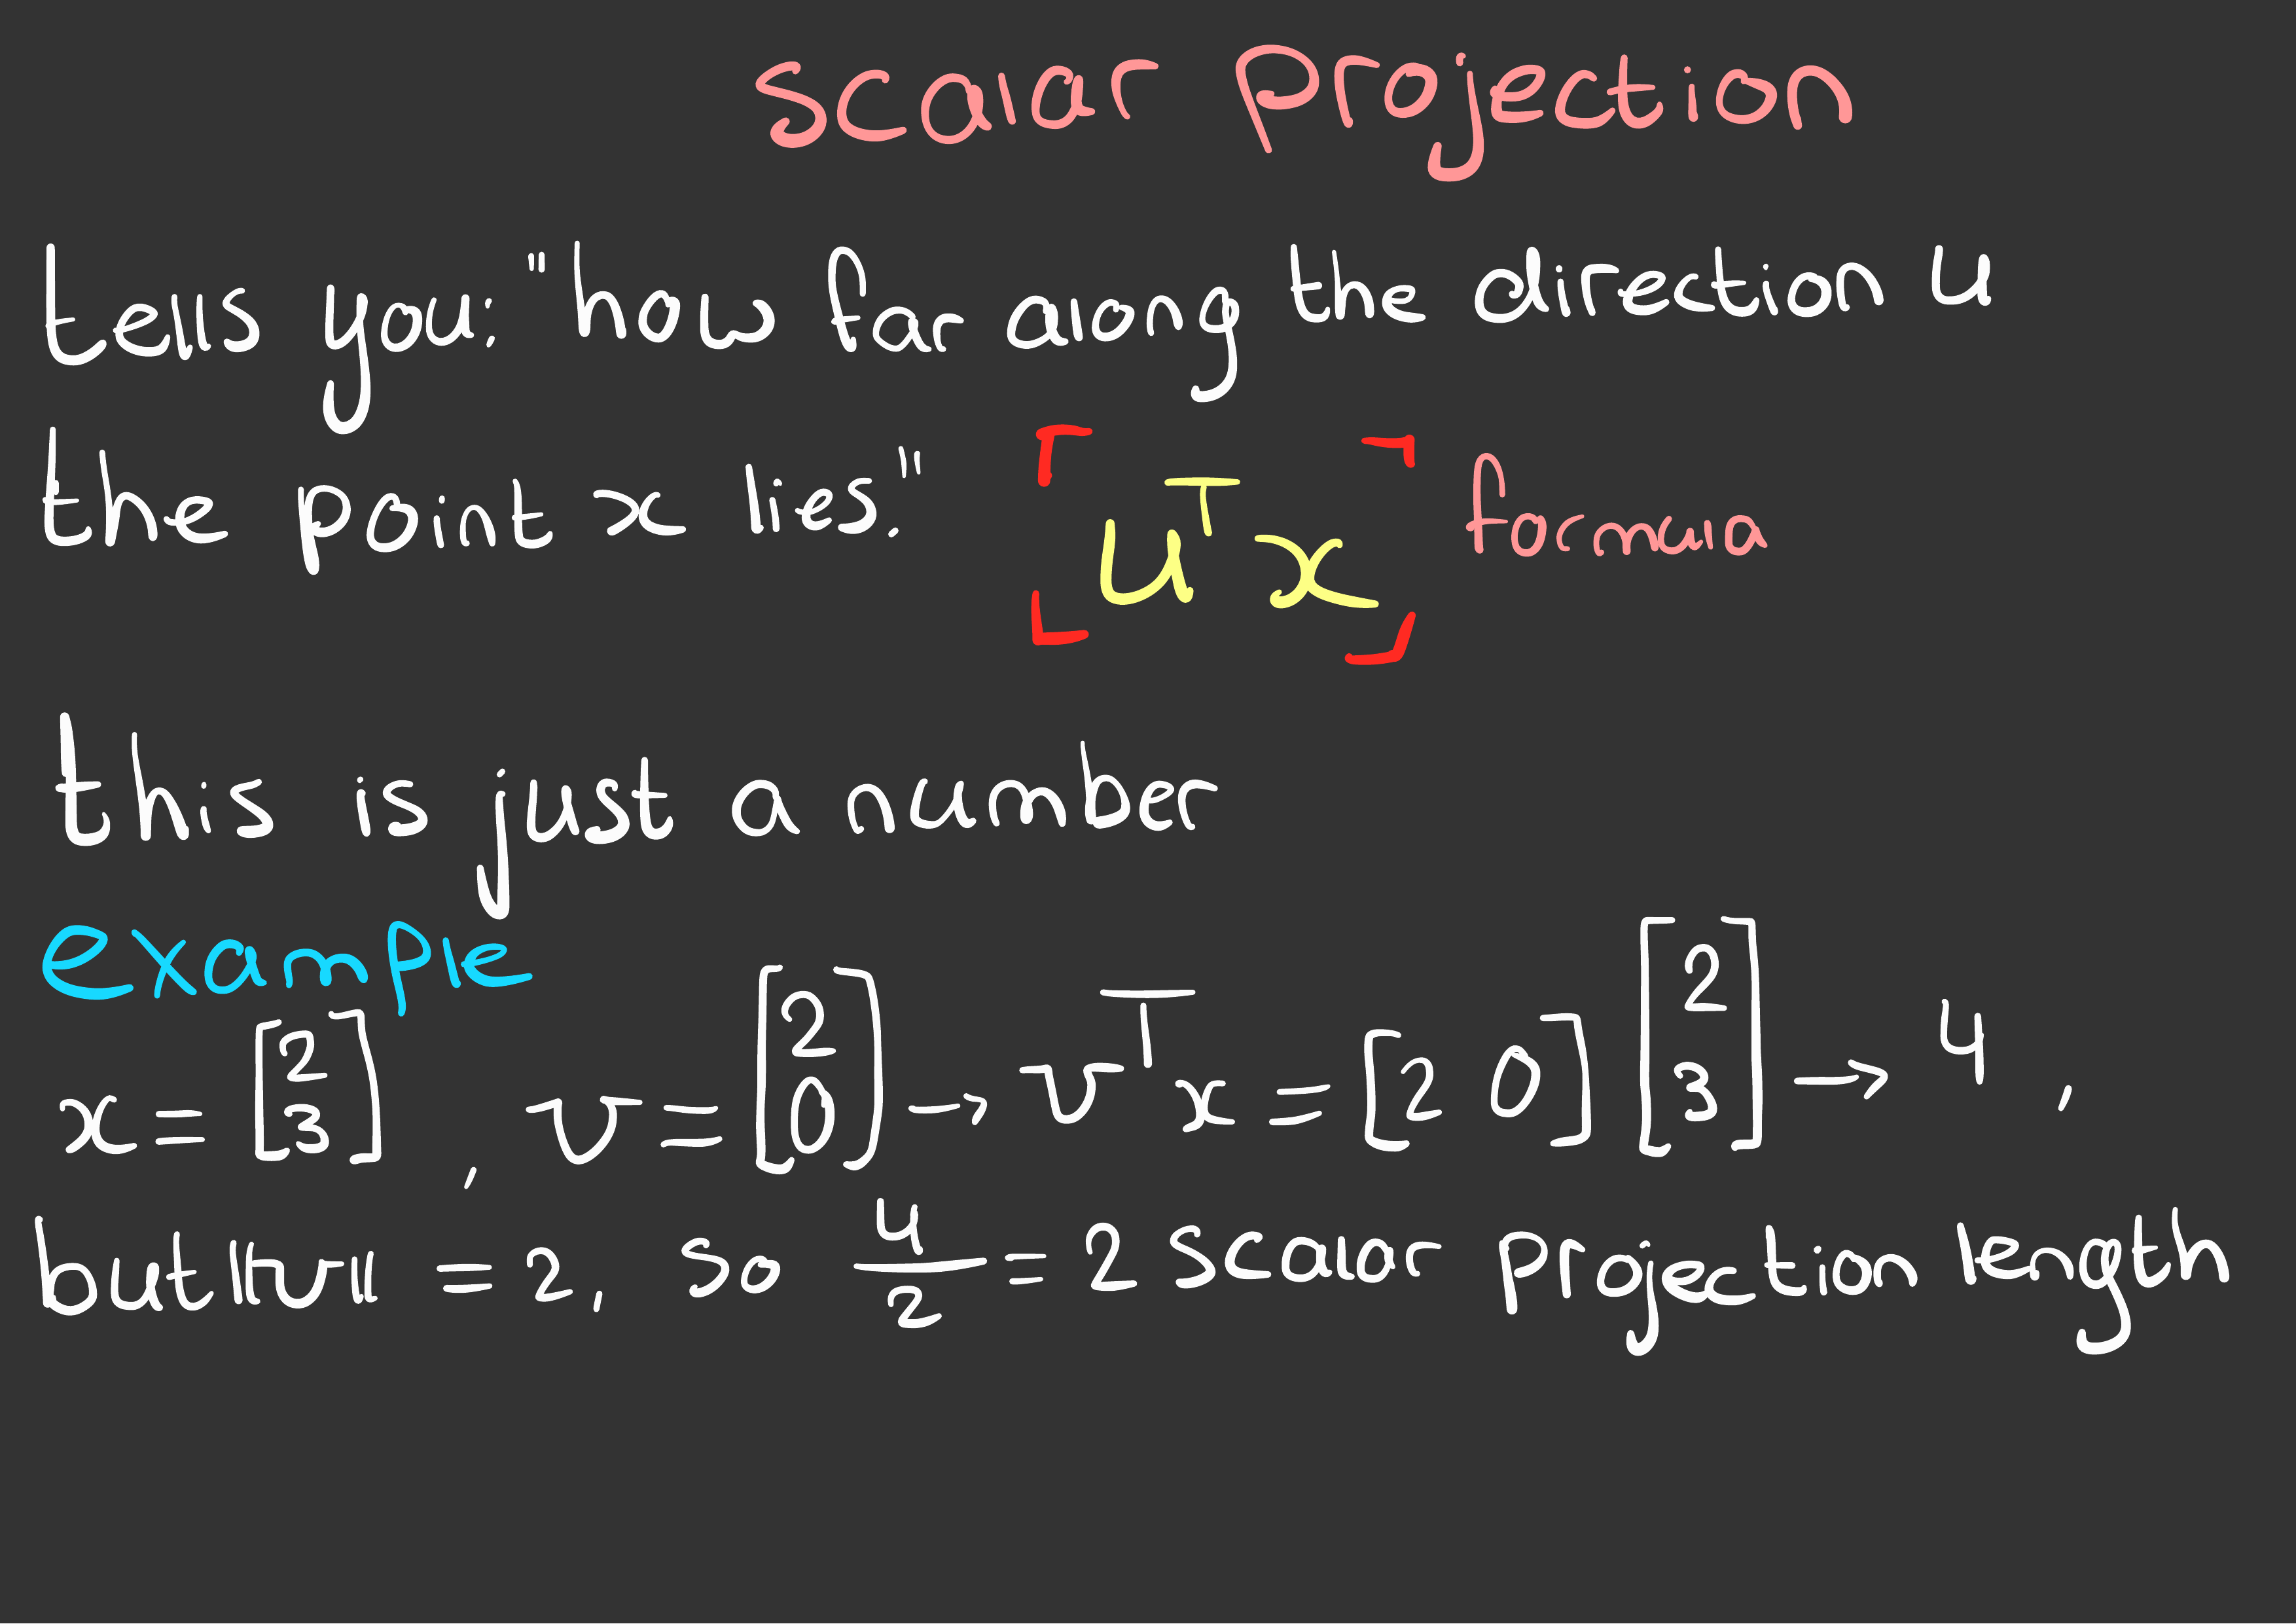 scalar projection
tells you: "how far along the direction u
the point x lies."
uᵀx formula
this is just a number
example
x = [2 3], v = [2 0] → vᵀx = [2 0] [2 3] → 4,
but ||v|| = 2, so 4/2 = 2 scalar projection length